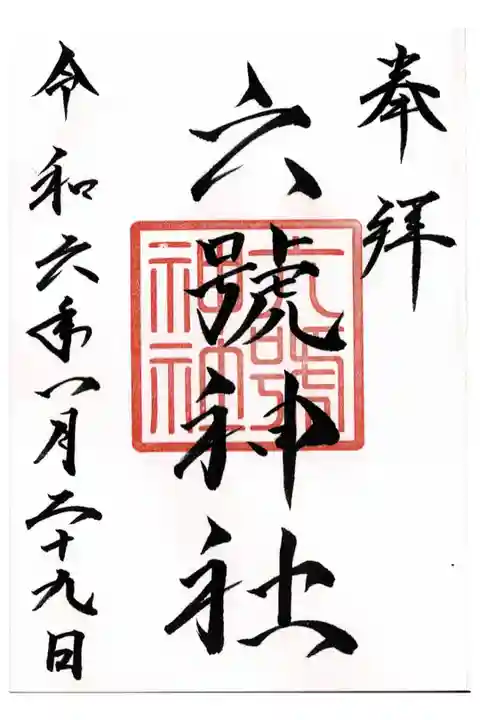 奉拜
六號神社
六號神社
令和六年八月二十九日